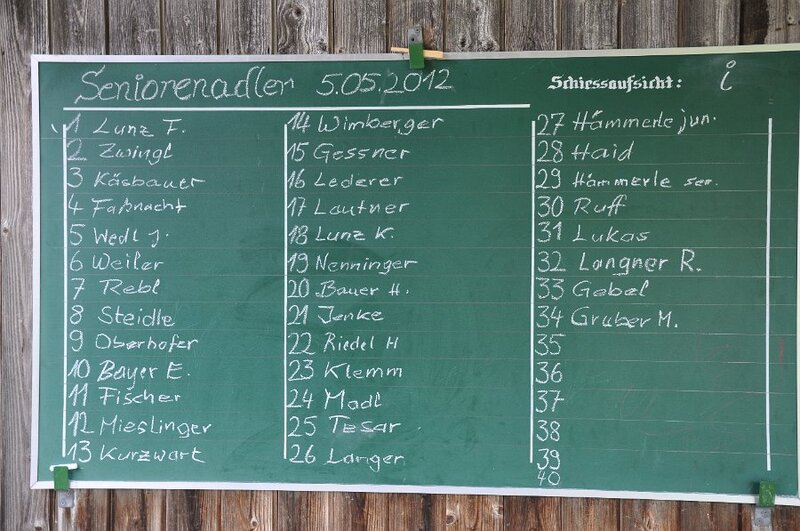 Seniorenadler 5.05.2012
Schiessaufsicht: i
1 Lunz F.
2 Zwingl
3 Käsbauer
4 Faßnacht
5 Wedl J.
6 Weiler
7 Rebl
8 Steidle
9 Oberhofer
10 Bayer E.
11 Fischer
12 Mieslinger
13 Kurzwart
14 Wimberger
15 Gessner
16 Lederer
17 Lautner
18 Lunz K.
19 Nenninger
20 Bauer H.
21 Jenke
22 Riedel H
23 Klemm
24 Madl
25 Tesar
26 Langer
27 Hämmerle jun.
28 Haid
29 Hämmerle sen.
30 Ruff
31 Lukas
32 Langner R.
33 Gebel
34 Gruber M.
35
36
37
38
39
40